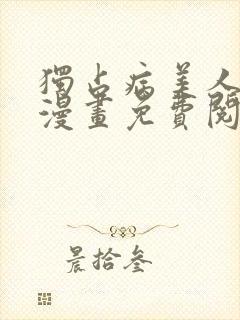 獨占病美人
漫畫免費閱
晨拾叁